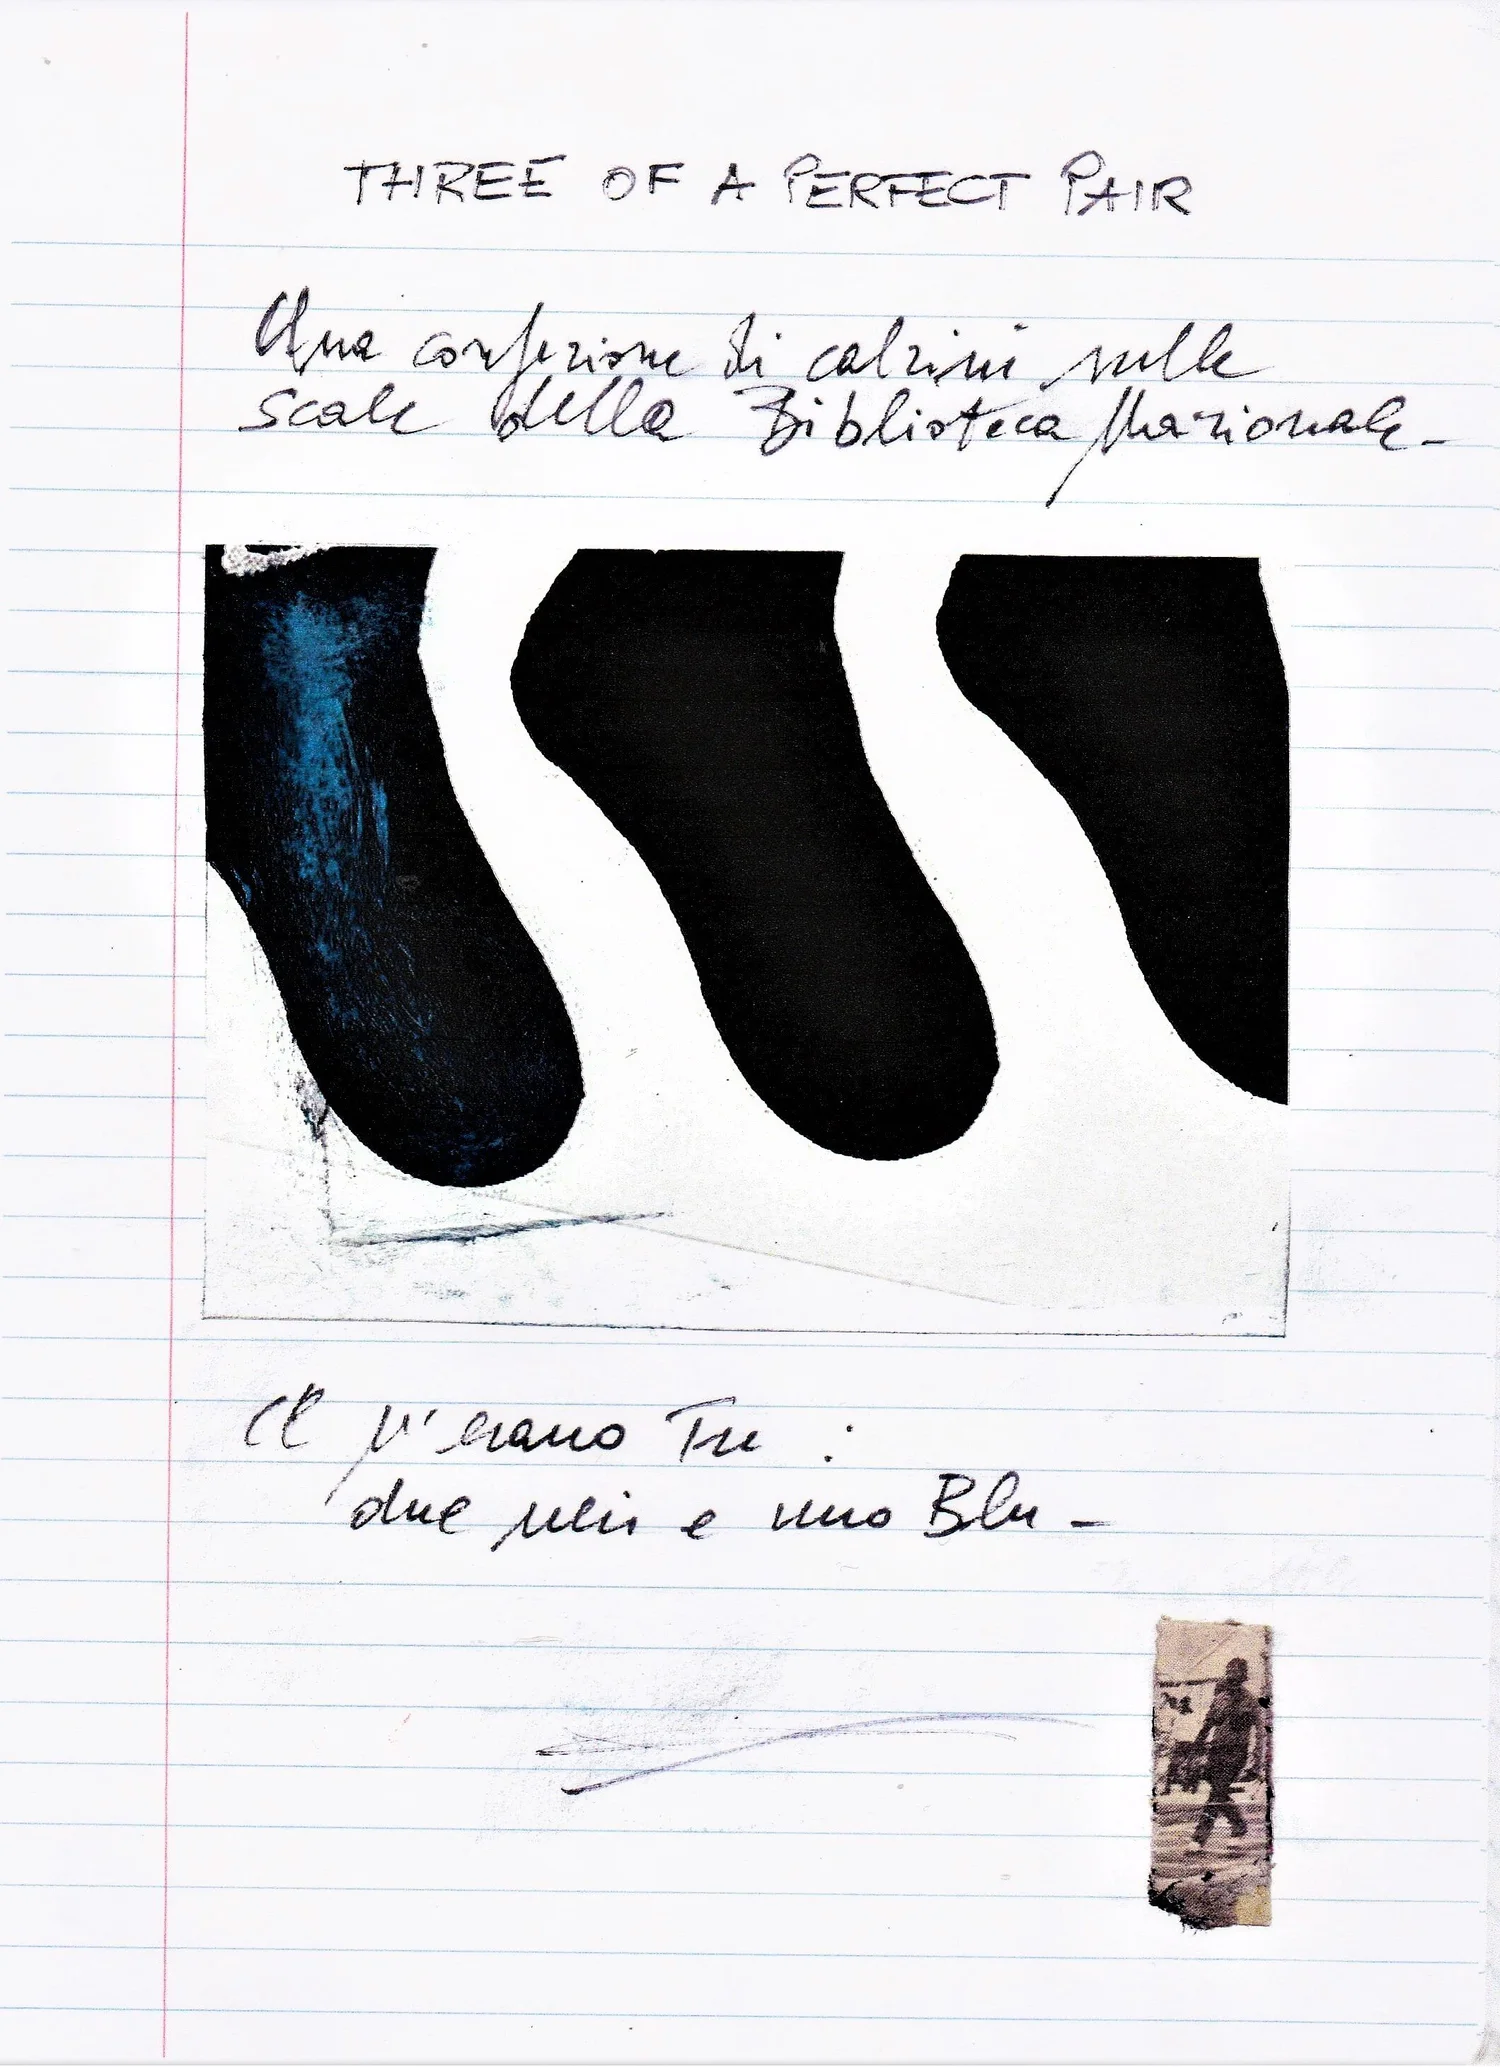 THREE OF A PERFECT PAIR
Una confezione di calzini sulle
scale della Biblioteca Nazionale -
Ce n'erano Tre :
due neri e uno Blu -